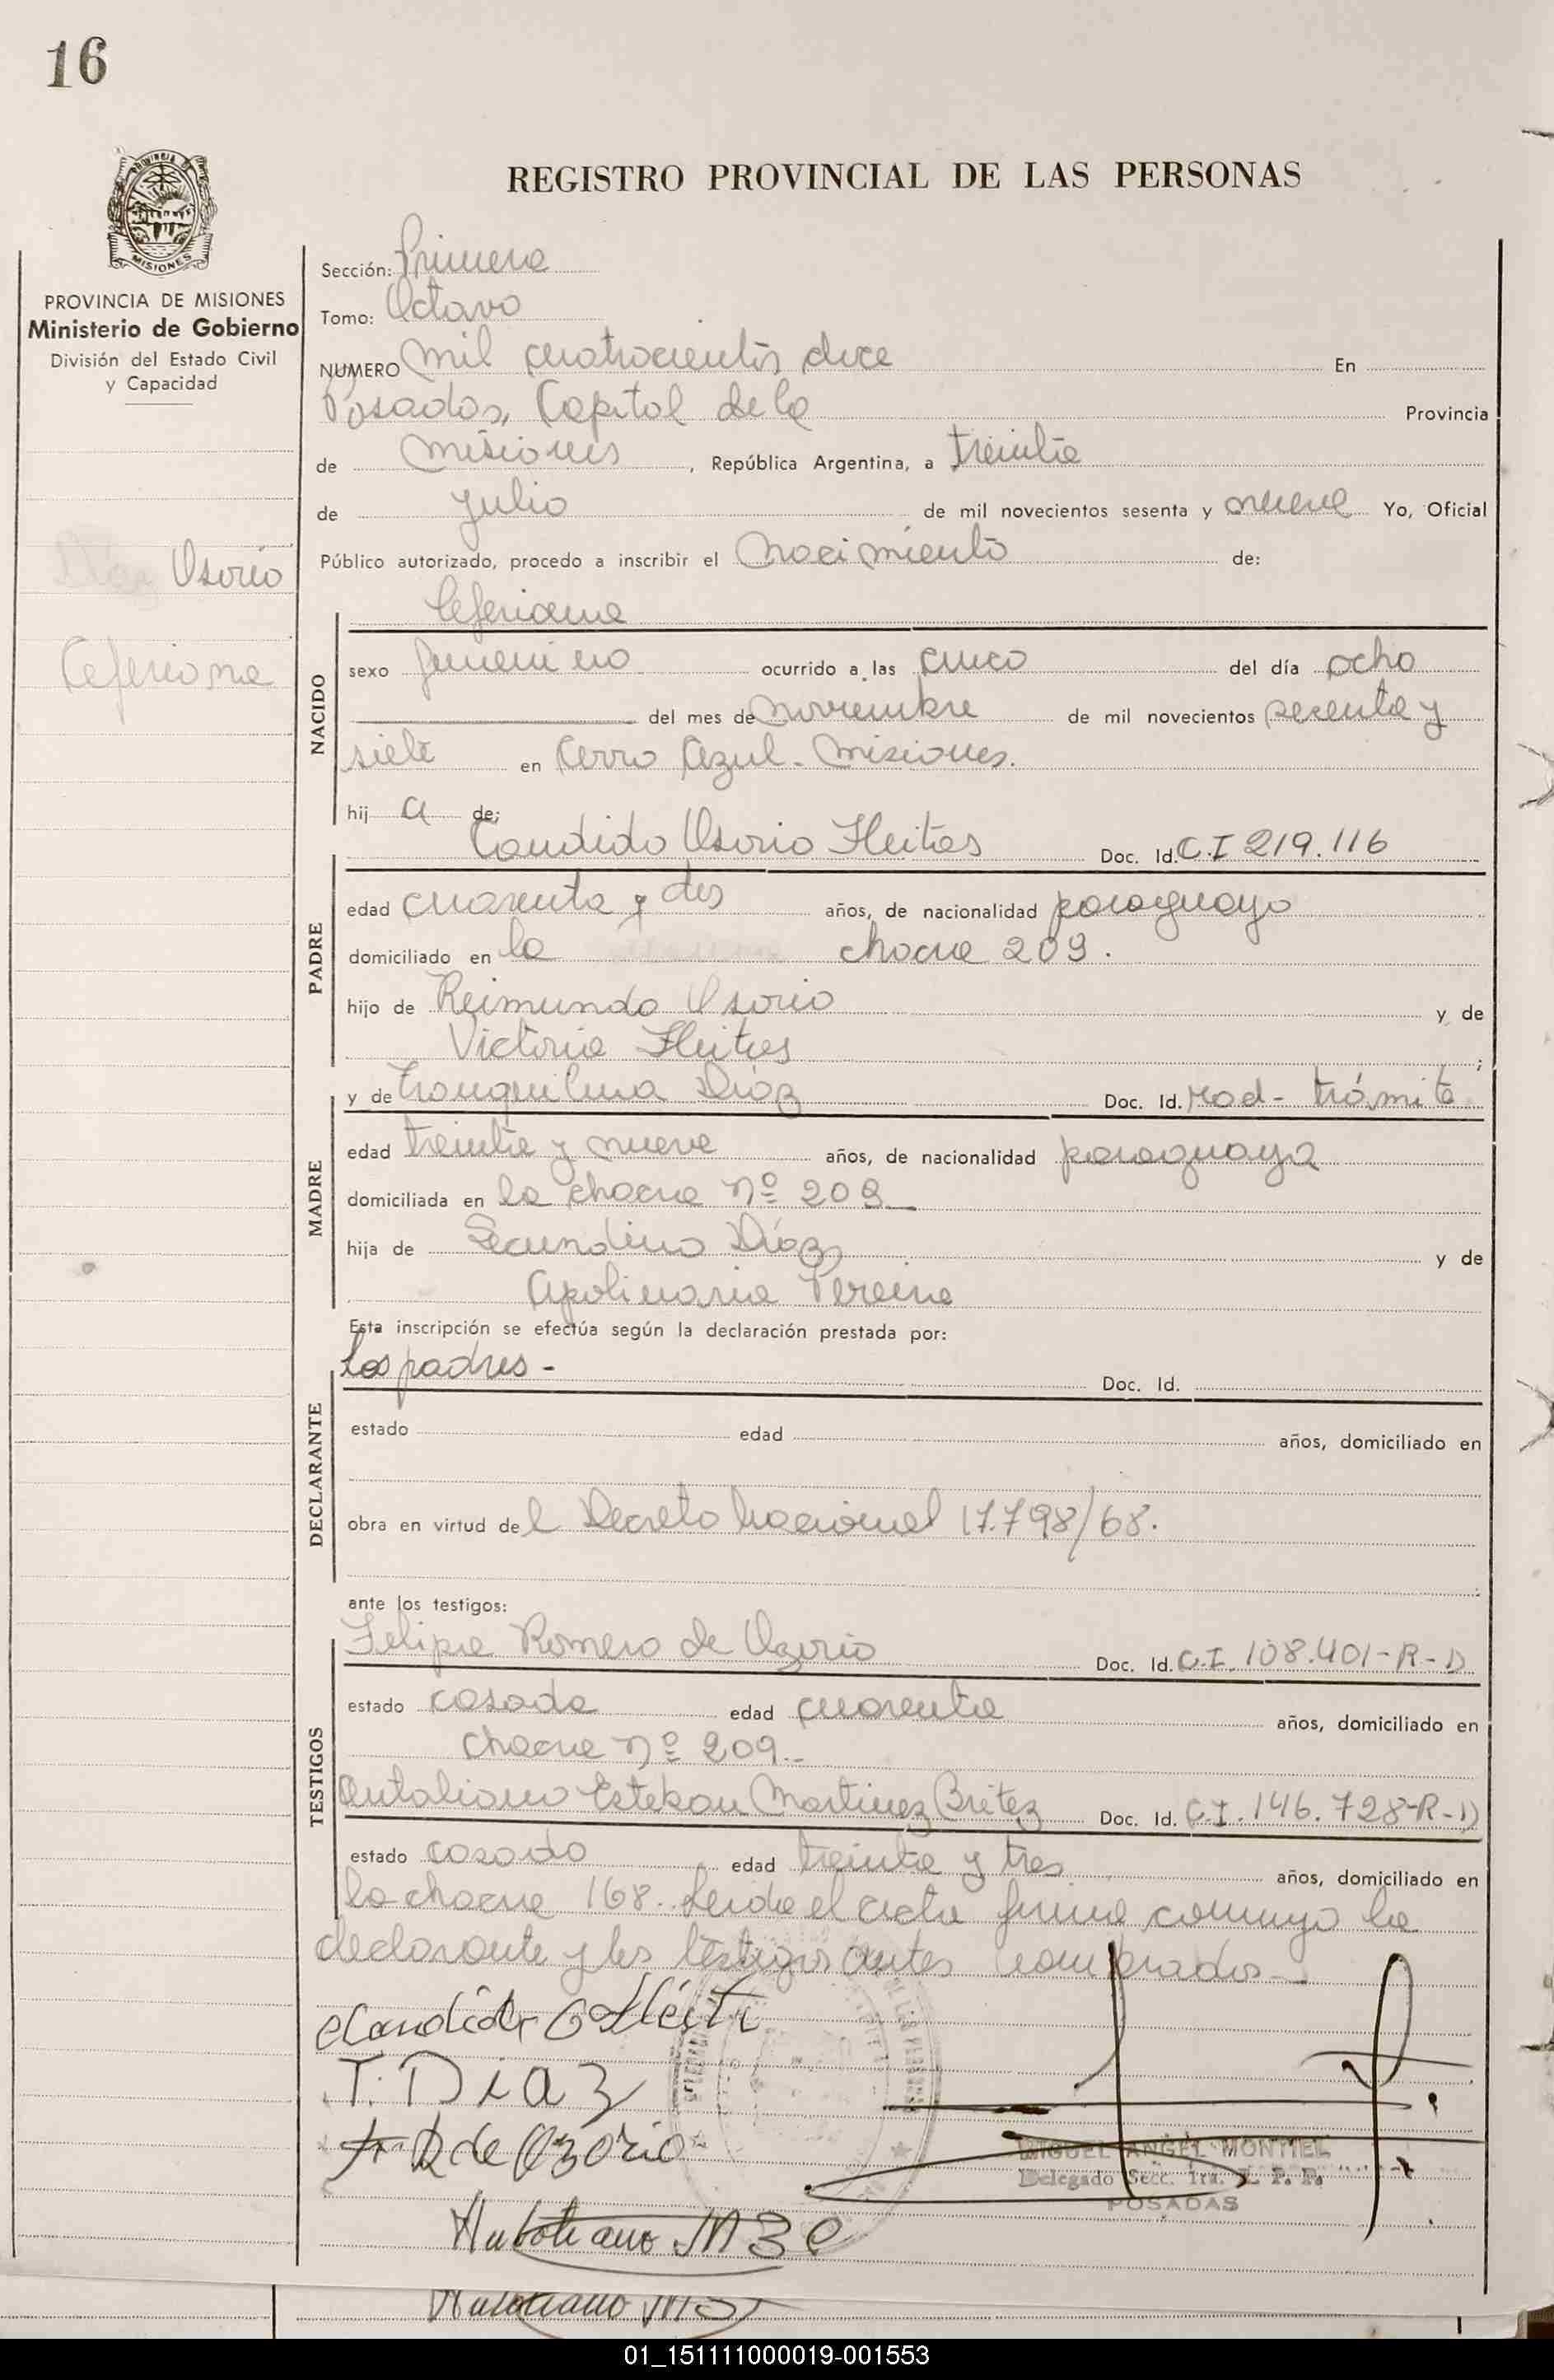 16
REGISTRO PROVINCIAL DE LAS PERSONAS
PROVINCIA DE MISIONES
Ministerio de Gobierno
División del Estado Civil
y Capacidad
Osorio
Ceferiana
Sección: Primera
Tomo: Octavo
NUMERO mil cuatrocientos doce En
Posadas, Capital de la Provincia
de Misiones, República Argentina, a treinta
de Julio de mil novecientos sesenta y nueve Yo, Oficial
Público autorizado, procedo a inscribir el Nacimiento de:
NACIDO
Ceferiana
sexo femenino ocurrido a las cinco del día ocho
del mes de noviembre de mil novecientos sesenta y
siete en Cerro Azul - Misiones.
hij a de:
PADRE
Candido Osorio Fleitas Doc. Id. C.I 219.116
edad cuarenta y dos años, de nacionalidad paraguayo
domiciliado en la chacra 209.
hijo de Reimundo Osorio y de
Victoria Fleitas ;
MADRE
y de Tranquilina Díaz Doc. Id. rad- trámite
edad treinta y nueve años, de nacionalidad paraguaya
domiciliada en la chacra Nº 209
hija de Secundino Díaz y de
Apolinaria Pereira
Esta inscripción se efectúa según la declaración prestada por:
DECLARANTE
Los padres - Doc. Id.
estado edad años, domiciliado en
obra en virtud de l Decreto Nacional 17.798/68.
ante los testigos:
TESTIGOS
Felipa Romero de Ozorio Doc. Id. C.I. 108.401-R-D
estado casada edad cuarenta años, domiciliado en
chacra Nº 209.-
Esteban Martinez Britez Doc. Id. C.I. 146.728-R-D
estado casado edad treinta y tres años, domiciliado en
la chacra 168. Leida el acta firma conmigo la
declarante y los testigos antes nombrados-
T. Diaz
de Ozorio
MIGUEL ANGEL MONTIEL
Delegado Secc. 1ra. R. P. P.
POSADAS
01_151111000019-001553